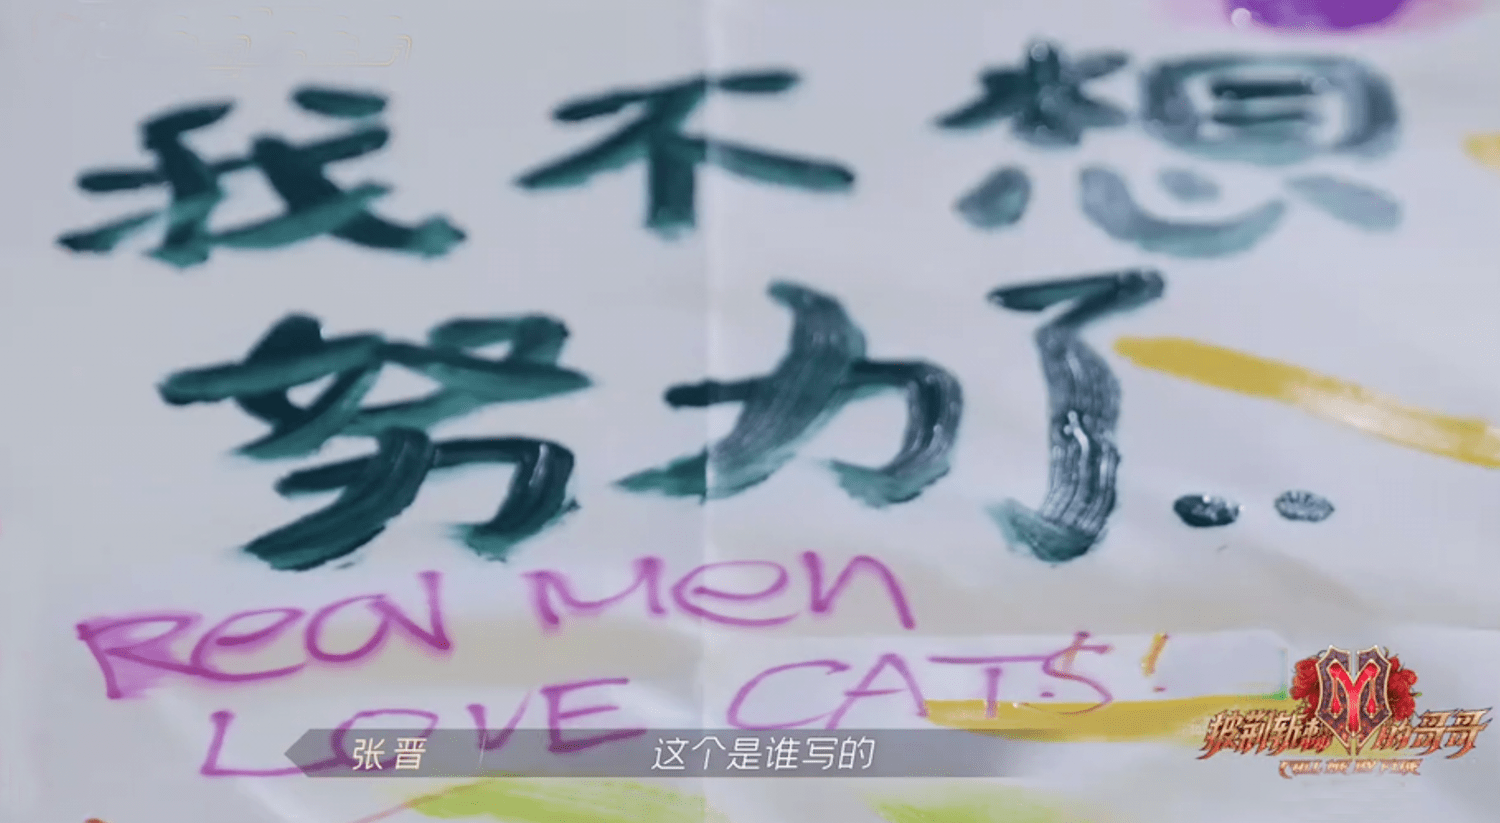 我不想
努力了..
Real Men
LOVE CATS!
张晋 这个是谁写的
披荆斩棘的哥哥
CALL ME BY FIRE